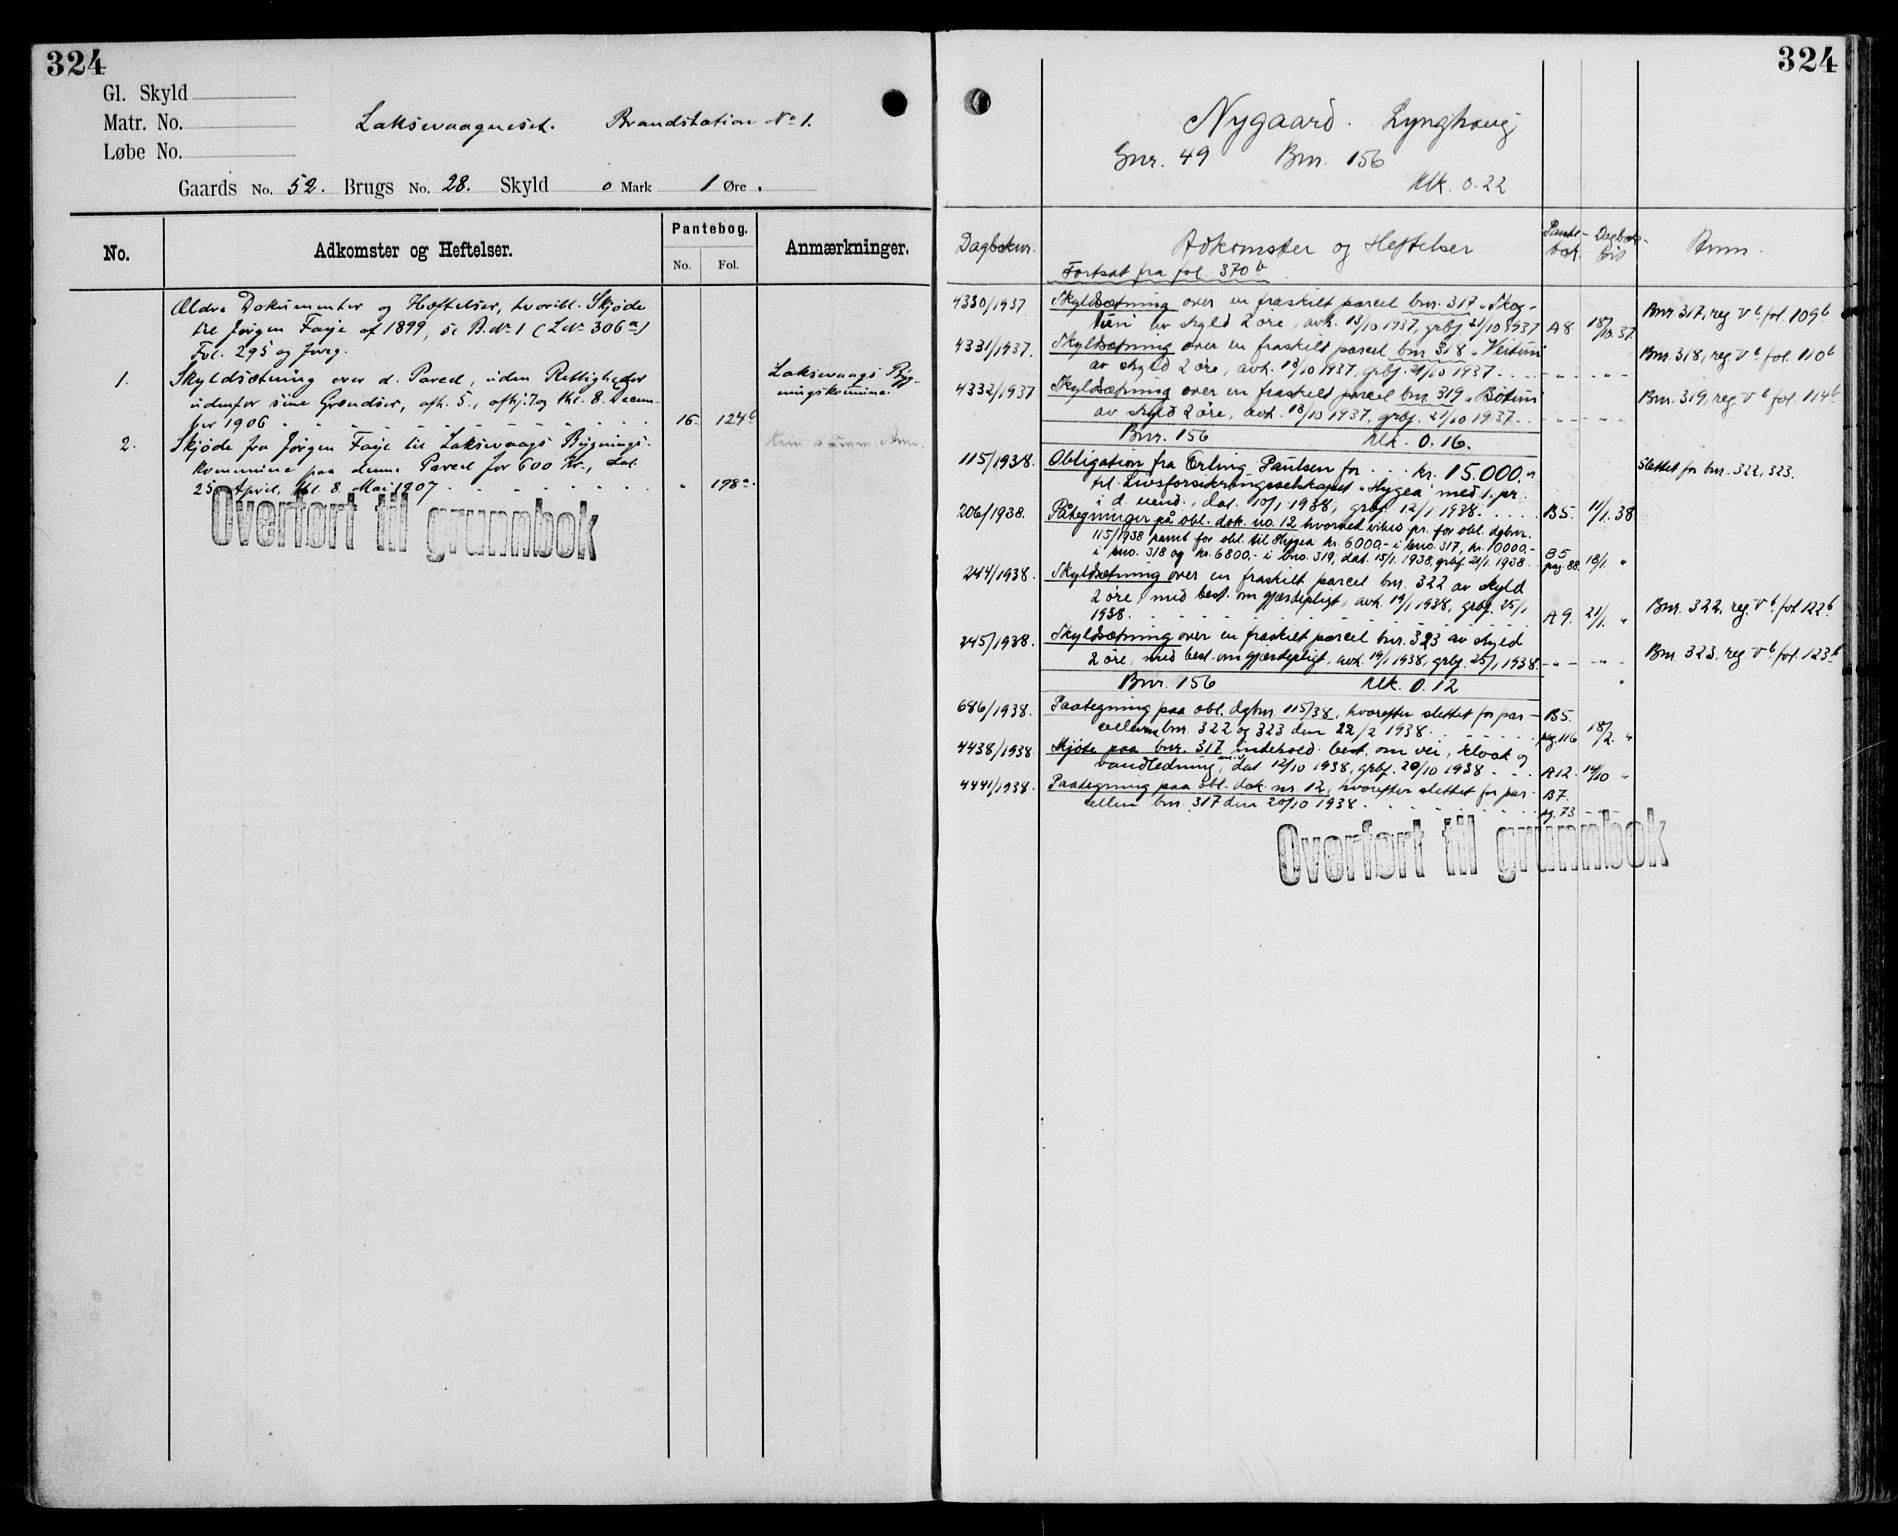 324
Gl. Skyld
Matr. No.
Løbe No.
Laksevaagneset. Brandstation No 1.
Gaards No. 52. Brugs No. 28. Skyld 0 Mark 1 Øre.
No. Adkomster og Heftelser. Pantebog. No. Fol. Anmærkninger.
Ældre Dokumenter og Hæftelser, hvoribl. Skjøde
til Jørgen Faye af 1899, se B.No 1 (L.No 306a)
Fol. 295 og foreg.
1. Skyldsætning over d. Parcel, uden Rettigheder
udenfor sine Grændser, afh. 5., afhj. og thl. 8. Decem-
ber 1906 16 124b
Laksevaags Byg-
ningskommune
2. Skjøde fra Jørgen Faye til Laksevaags Bygnings-
kommune paa denne Parcel for 600 Kr., dat.
25 April, thl. 8 Mai 1907 " 198a
Overført til grunnbok
324
Nygaard. Lynghaug
Gnr. 49 Bnr. 156
Mk. 0.22
Dagboknr. Adkomster og Heftelser Pante-bok. Dagbok- Anm.
Fortsat fra fol. 370b
4330/1937 Skyldsætning over en fraskilt parcel bnr. 317 "Skog-
tun" av skyld 2 øre, avh. 13/10 1937, grbf. 21/10 1937 A8 18/10 37. Bnr. 317, reg. Vb fol 109b
4331/1937. Skyldsætning over en fraskilt parcel bnr 318 "Veitun"
av skyld 2 øre, avh. 13/10 1937, grbf. 21/10 1937. Bnr. 318, reg Vb fol. 110b
4332/1937 Skyldsætning over en fraskilt parcel bnr. 319 "Bøtun"
av skyld 2 øre, avh. 13/10 1937, grbf. 21/10 1937. Bnr. 319, reg Vb fol. 114b
Bnr. 156 Mk. 0.16.
115/1938. Obligation fra Erling Paulsen for kr. 15.000.-
til Livsforsikringsselskapet "Hygea" med 1. pr.
i d. eiend., dat. 10/1 1938, grbf. 12/1 1938. B5. 11/1. 38
Slettet for bnr. 322, 323.
206/1938. Påtegninger på obl. dok. no. 12 hvorved vikes pr. for obl. dgbnr.
115/1938 samt for obl. til Hygea kr. 6000.- i bno. 317, kr. 10000.-
i bno. 318 og kr. 6800.- i bno. 319, dat. 15/1. 1938, grbf. 21/1. 1938. B5 pag. 88. 18/1. "
244/1938. Skyldsætning over en fraskilt parcel bnr. 322 av skyld
2 øre, med best. om gjærdepligt, avh. 19/1 1938, grbf. 25/1
1938. A9. 21/1. " Bnr. 322, reg. Vb. fol 122b
245/1938. Skyldsætning over en fraskilt parcel bnr. 323 av skyld
2 øre, med best. om gjærdepligt, avh. 19/1 1938, grbf. 25/1 1938. Bnr. 323, reg. Vb fol. 123b
Bnr. 156 Mk. 0.12
686/1938. Paategning paa obl. dgbnr 115/38, hvorefter slettet for par-
cellerne bnr. 322 og 323 den 22/2 1938. B5. pag. 116 18/2. "
4438/1938 Skjøte paa bnr. 317 indehold. best. om vei, kloak og
vandledning, dat. 12/10 1938, grbf. 20/10 1938 A12. 14/10 "
4441/1938. Paategning paa obl. dok. nr. 12, hvorefter slettet for par-
cellen bnr. 317 den 20/10 1938. B7. pg. 73
Overført til grunnbok